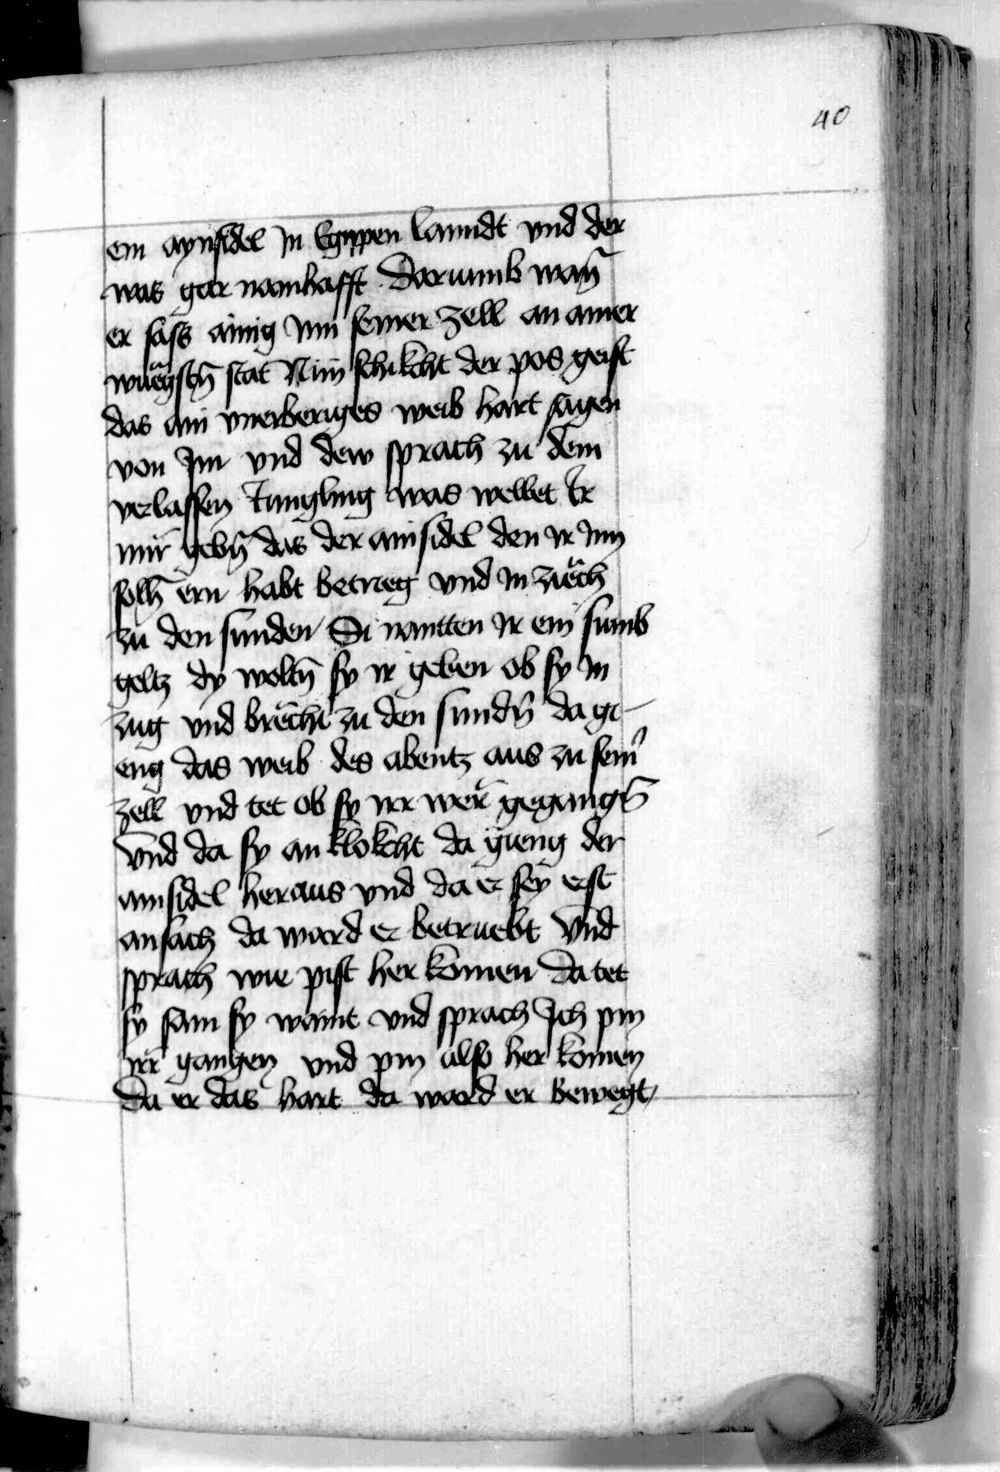 40
ein aynsidel Jn Egippen lanndt vnd der
was gar namhafft Darumb wañ
er sass ainig Jnn seiner zell an ainer
wuẽgsch̄ stat Nun schikcht der pos geist
das ain vnerberiges weib hart sagen
von Jm vnd dew sprach zu dem
verlassen Jungling was wellet Jr
mir gebñ das der ainsidel den ir Jnn
solh̄ ern habt betrieg vnd in zuech
zu den sunden Si nantten Jr ein sumb
geltz dy woltñ sy ir geben ob sy in
zug vnd brecht zu den sundñ da gi-
eng das weib des abentz aus zu sein̄
zell vnd tet ob sy irr wer gegangñ
Vnd da sy an klokcht da gieng der
ainsidel heraus vnd da er sey erst
ansach da ward er betruebt Vnd
sprach wie pist her komen Da tet
sy sam sy waint vnd sprach Jch pin
irr gangen vnd pin also her komen
Da er das hart da ward er bewegt